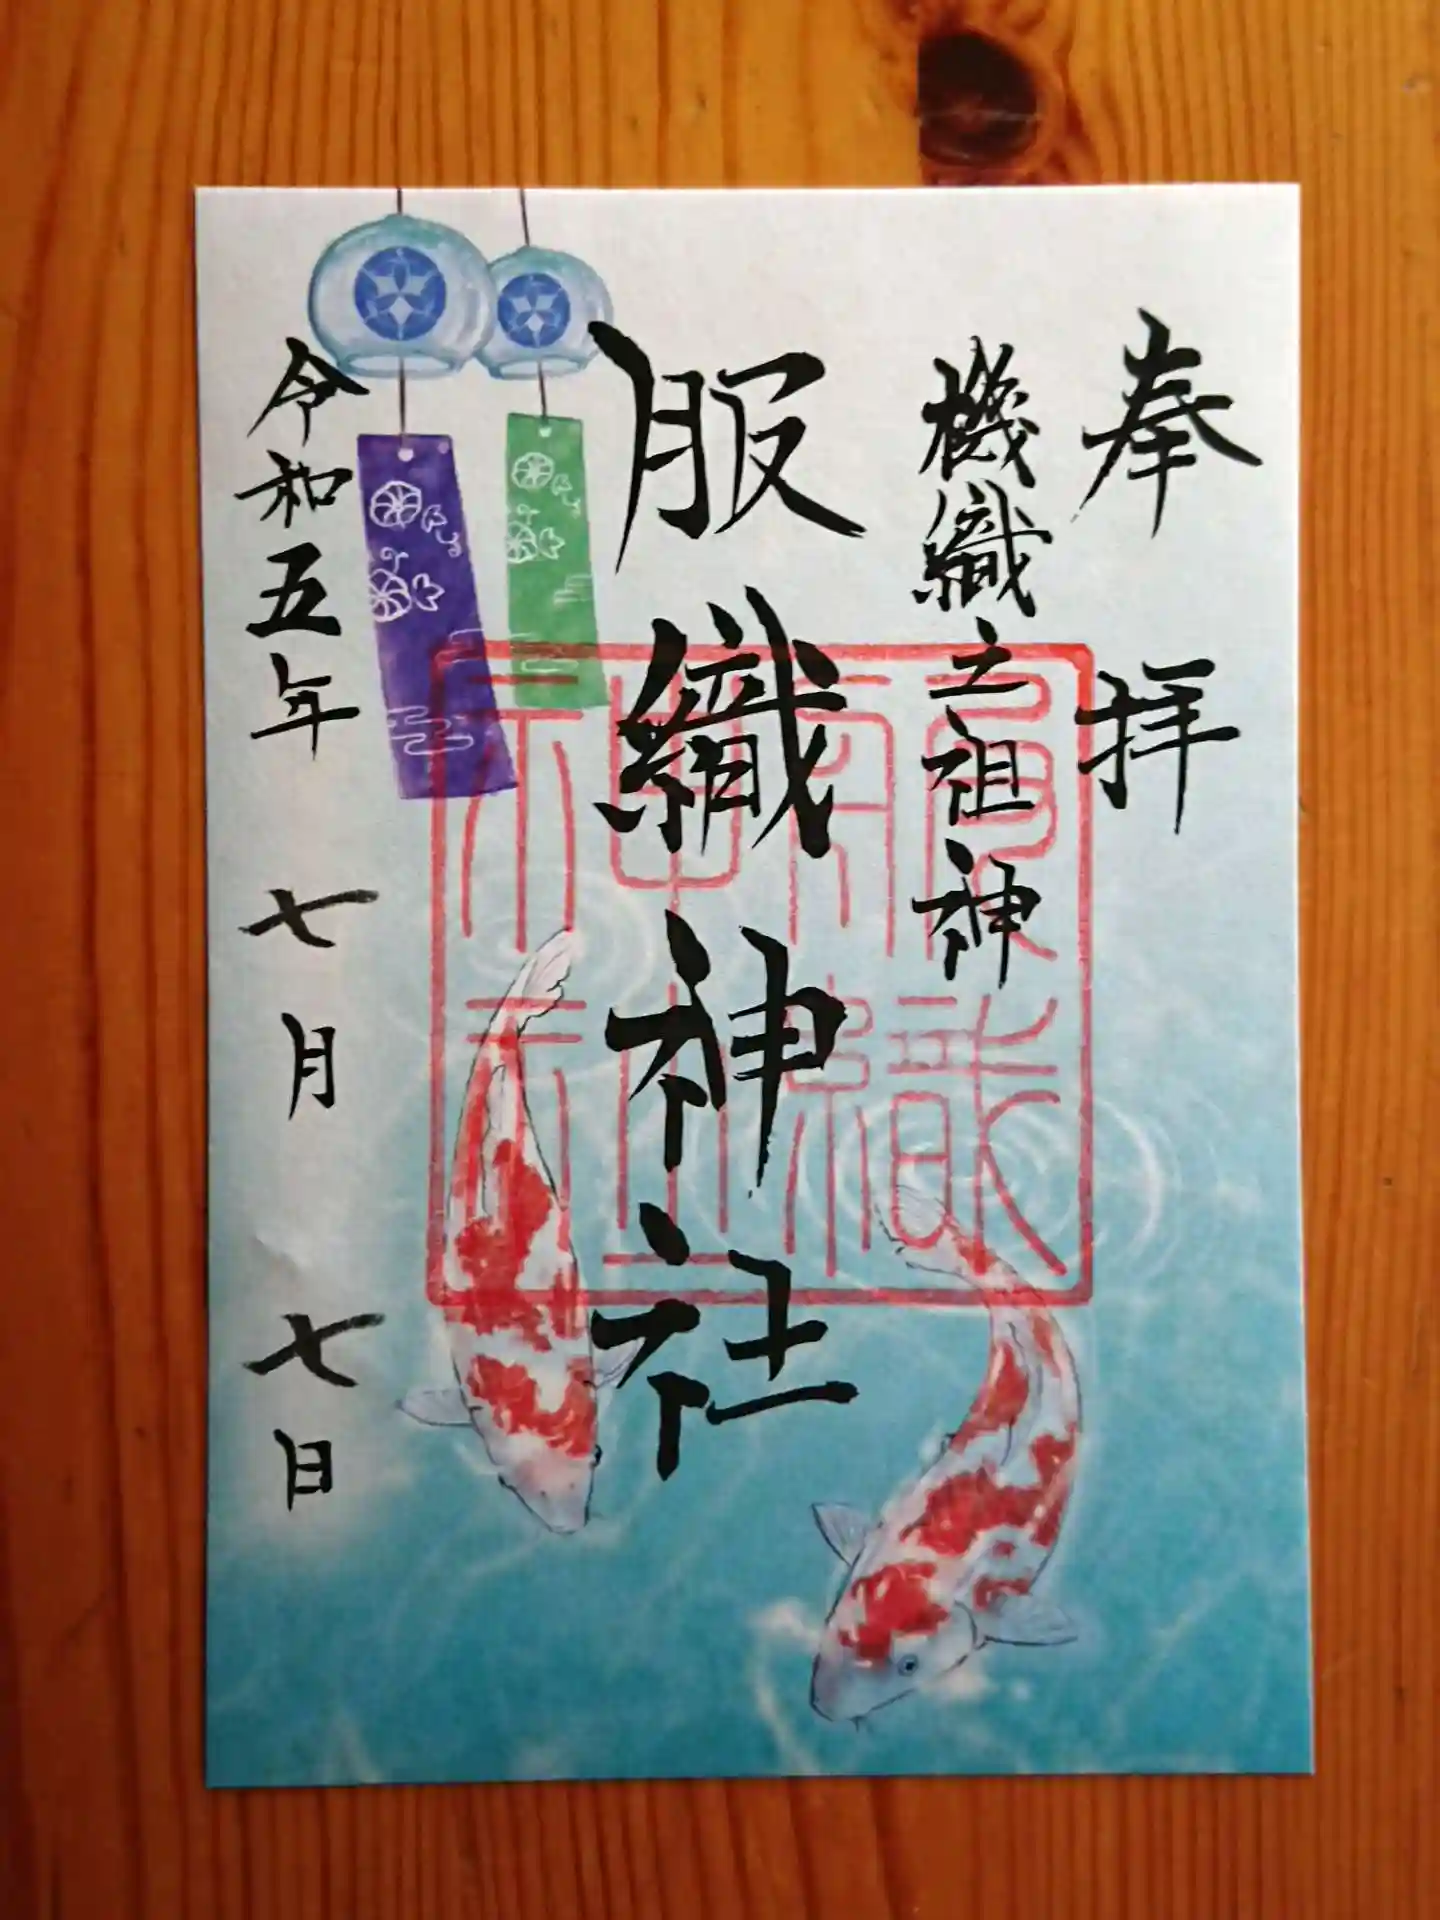 奉拝
機織之祖神
服織神社
令和五年七月七日
服織神社